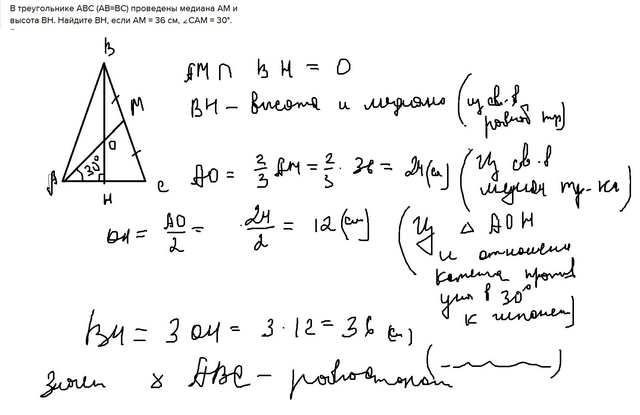 В треугольнике ABC (AB=BC) проведены медиана AM и
высота BH. Найдите BH, если AM = 36 см, ∠CAM = 30°.
B
M
O
30°
A
H
C
AM ∩ BH = O
BH – высота и медиана (из св-в
равноб тр)
AO = 2/3 AM = 2/3 · 36 = 24 (см) (из св-в
медиан тр-ка)
OH = AO/2 = 24/2 = 12 (см) (из △ AOH
и отношения
катета против
угла в 30°
к гипотен)
BH = 3 OH = 3 · 12 = 36 (см)
Значит △ ABC – равносторон